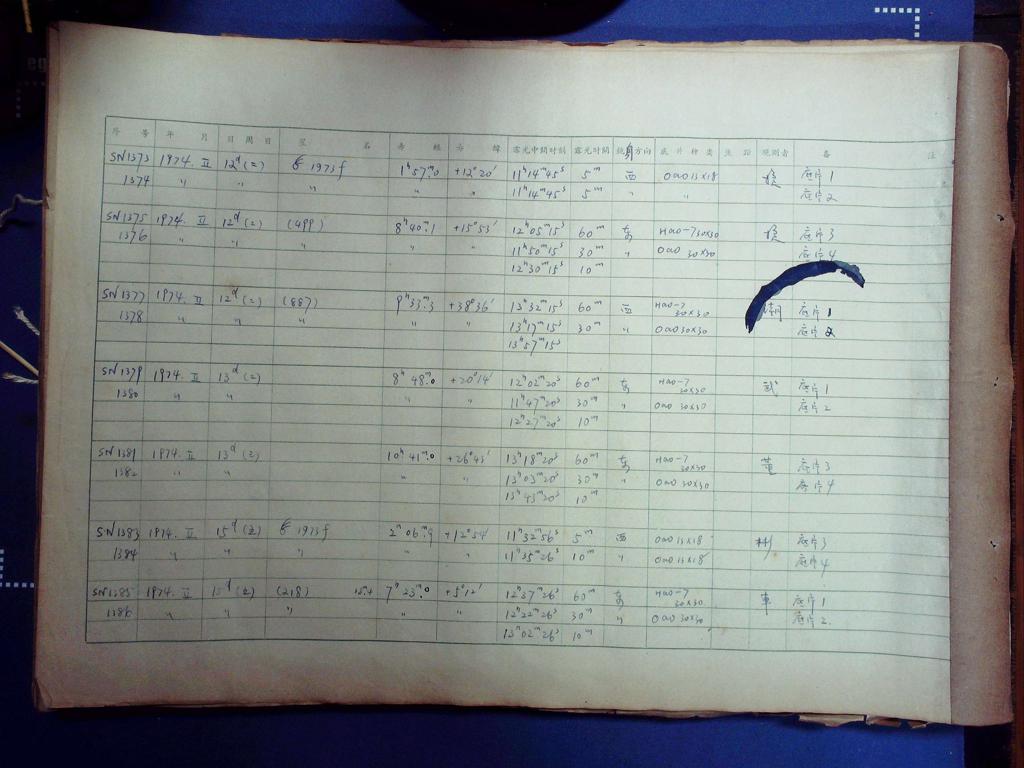 序 号 年 月 日 周 日 星 名 赤 經 赤 緯 露光中間时刻 露光时間 鏡身方向 底 片 种 类 观測者 备 注
SN1373 1974. II 12ᵈ(二) 1973f 1ʰ57ᵐ.0 +12°20′ 11ʰ14ᵐ45ˢ 5ᵐ 西 OaO 13×18 底片1
1374 〃 〃 〃 〃 〃 11ʰ14ᵐ45ˢ 5ᵐ 〃 底片2
SN1375 1974. II 12ᵈ(2) (499) 8ʰ40ᵐ.1 +15°53′ 12ʰ05ᵐ15ˢ 60ᵐ 东 HaO-7 30×30 底片3
1376 〃 〃 〃 〃 〃 11ʰ50ᵐ15ˢ 30ᵐ 〃 OaO 30×30 底片4
12ʰ30ᵐ15ˢ 10ᵐ
SN1377 1974. II 12ᵈ(2) (887) 9ʰ33ᵐ.3 +38°36′ 13ʰ32ᵐ15ˢ 60ᵐ 西 HaO-7 30×30 底片1
1378 〃 〃 〃 〃 〃 13ʰ17ᵐ15ˢ 30ᵐ 〃 OaO 30×30 底片2
13ʰ57ᵐ15ˢ
SN1379 1974. II 13ᵈ(2) 8ʰ48ᵐ.0 +20°14′ 12ʰ02ᵐ20ˢ 60ᵐ 东 HaO-7 30×30 武 底片1
1380 〃 〃 〃 〃 11ʰ47ᵐ20ˢ 30ᵐ 〃 OaO 30×30 底片2
12ʰ27ᵐ20ˢ 10ᵐ
SN1381 1974. II 13ᵈ(2) 10ʰ41ᵐ.0 +26°43′ 13ʰ18ᵐ20ˢ 60ᵐ 东 HaO-7 30×30 董 底片3
1382 〃 〃 〃 〃 13ʰ03ᵐ20ˢ 30ᵐ 〃 OaO 30×30 底片4
13ʰ43ᵐ20ˢ 10ᵐ
SN1383 1974. II 15ᵈ 1973f 2ʰ06ᵐ.9 +12°54′ 11ʰ32ᵐ56ˢ 5ᵐ 西 OaO 13×18 彬 底片3
1384 〃 〃 〃 〃 〃 11ʰ35ᵐ26ˢ 10ᵐ 〃 OaO 13×18 底片4
SN1385 1974. II 15ᵈ (218) 7ʰ23ᵐ.0 +5°12′ 12ʰ37ᵐ26ˢ 60ᵐ 东 HaO-7 30×30 车 底片1
1386 〃 〃 〃 〃 〃 12ʰ22ᵐ26ˢ 30ᵐ 〃 OaO 30×30 底片2
13ʰ02ᵐ26ˢ 10ᵐ